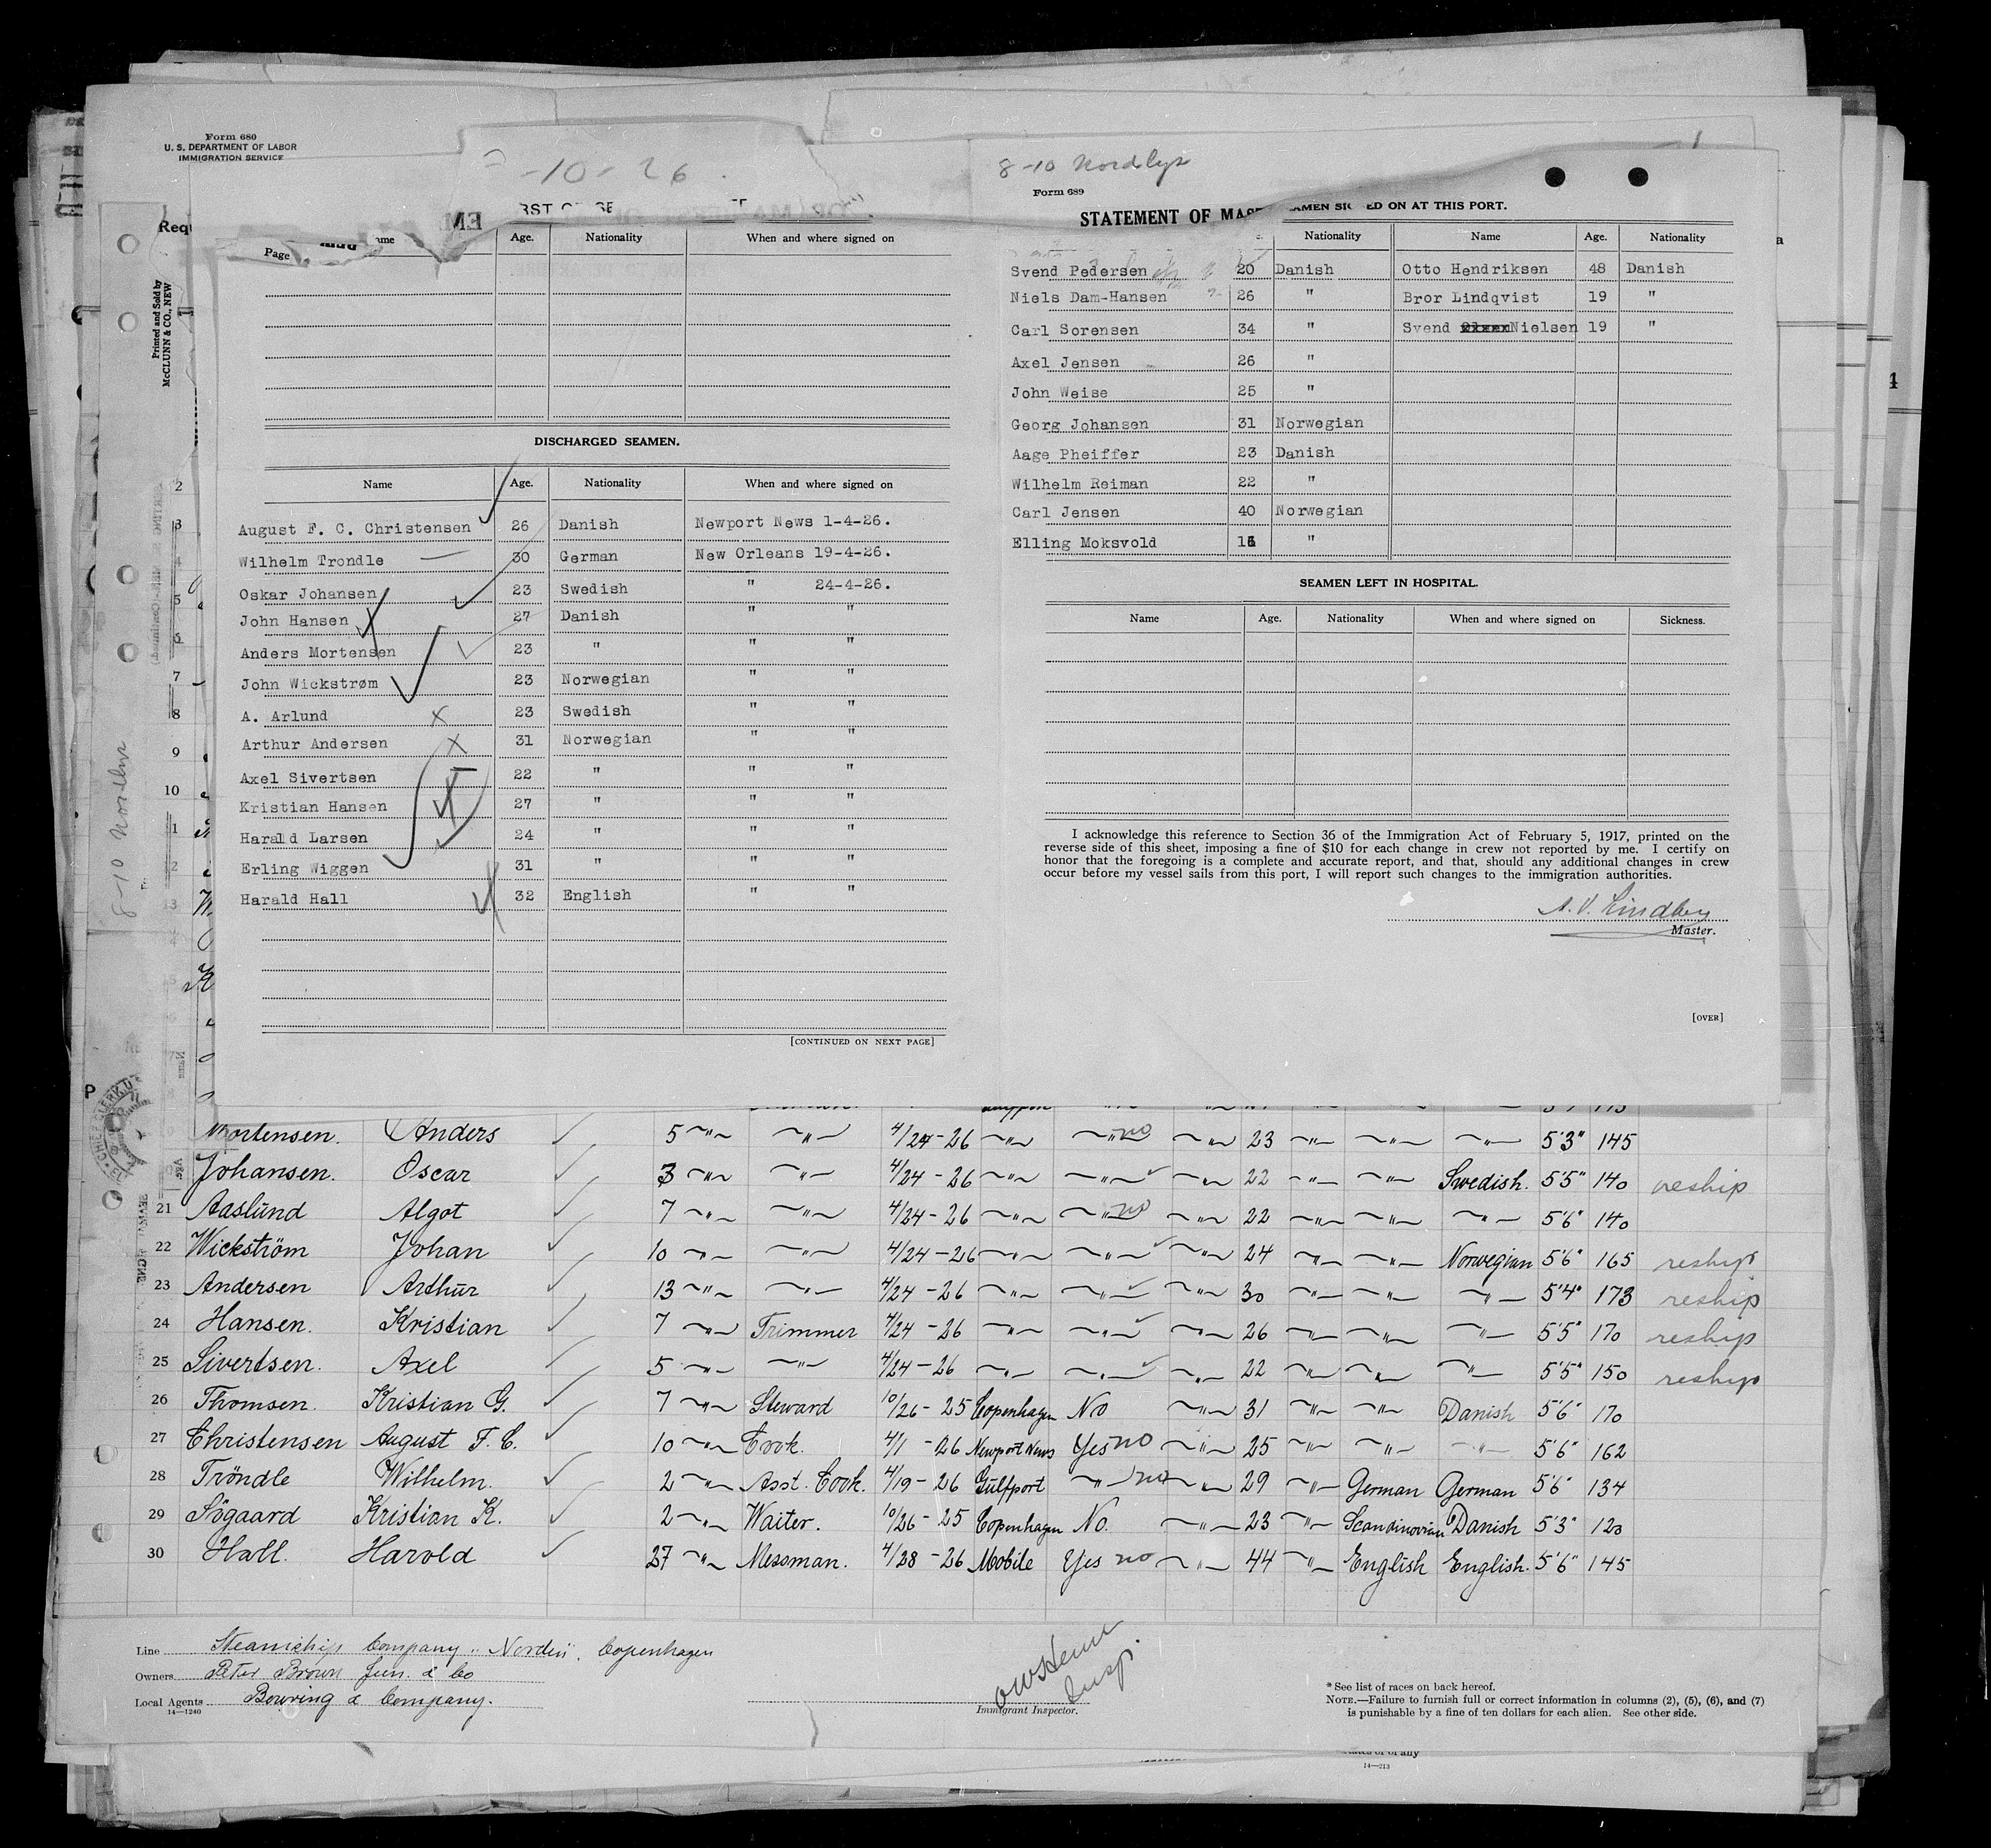 Form 680
U. S. DEPARTMENT OF LABOR
IMMIGRATION SERVICE
Requ
Printed and Sold by
McCLUNN & CO., NEW
-10-26
Page
Age. Nationality When and where signed on
DISCHARGED SEAMEN.
Name Age. Nationality When and where signed on
August F. C. Christensen 26 Danish Newport News 1-4-26.
Wilhelm Trondle 30 German New Orleans 19-4-26.
Oskar Johansen 23 Swedish " 24-4-26.
John Hansen 27 Danish " "
Anders Mortensen 23 " " "
John Wickstrøm 23 Norwegian " "
A. Arlund 23 Swedish " "
Arthur Andersen 31 Norwegian " "
Axel Sivertsen 22 " " "
Kristian Hansen 27 " " "
Harald Larsen 24 " " "
Erling Wiggen 31 " " "
Harald Hall 32 English " "
[CONTINUED ON NEXT PAGE]
8-10 Nordlys
Form 689
STATEMENT OF MAS
AMEN SIGNED ON AT THIS PORT.
Nationality Name Age. Nationality
Svend Pedersen 20 Danish Otto Hendriksen 48 Danish
Niels Dam-Hansen 26 " Bror Lindqvist 19 "
Carl Sorensen 34 " Svend Nielsen 19 "
Axel Jensen 26 "
John Weise 25 "
Georg Johansen 31 Norwegian
Aage Pheiffer 23 Danish
Wilhelm Reiman 22 "
Carl Jensen 40 Norwegian
Elling Moksvold "
SEAMEN LEFT IN HOSPITAL.
Name Age. Nationality When and where signed on Sickness.
I acknowledge this reference to Section 36 of the Immigration Act of February 5, 1917, printed on the
reverse side of this sheet, imposing a fine of $10 for each change in crew not reported by me. I certify on
honor that the foregoing is a complete and accurate report, and that, should any additional changes in crew
occur before my vessel sails from this port, I will report such changes to the immigration authorities.
A. V. Lindberg
Master.
[OVER]
Mortensen. Anders 5 " " 4/24-26 " " no " 23 " " " 5'3" 145
Johansen. Oscar 3 " " 4/24-26 " " " 22 " " Swedish. 5'5" 140 reship
21 Aaslund Algot 7 " " 4/24-26 " " no " 22 " " " 5'6" 140
22 Wickström Johan 10 " " 4/24-26 " " " 24 " " Norwegian 5'6" 165 reship
23 Andersen Arthur 13 " " 4/24-26 " " " 30 " " " 5'4" 173 reship
24 Hansen. Kristian 7 " Trimmer 4/24-26 " " " 26 " " " 5'5" 170 reship
25 Sivertsen. Axel 5 " " 4/24-26 " " " 22 " " " 5'5" 150 reship
26 Thomsen. Kristian G. 7 " Steward 10/26-25 Copenhagen No " 31 " " Danish 5'6" 170
27 Christensen August F. C. 10 " Cook. 4/1-26 Newport News Yes no " 25 " " " 5'6" 162
28 Tröndle Wilhelm. 2 " Asst. Cook. 4/19-26 Gulfport " no " 29 " German German 5'6" 134
29 Sögaard Kristian K. 2 " Waiter. 10/26-25 Copenhagen No. " 23 " Scandinavian Danish 5'3" 120
30 Hall. Harold 27 " Messman. 4/28-26 Mobile Yes no " 44 " English English. 5'6" 145
Line Steamship Company "Norden". Copenhagen
Owners Peter Brown Jun. & Co
Local Agents Bowring & Company.
14—1240
Insp.
Immigrant Inspector.
* See list of races on back hereof.
NOTE.—Failure to furnish full or correct information in columns (2), (5), (6), and (7)
is punishable by a fine of ten dollars for each alien. See other side.
14—213